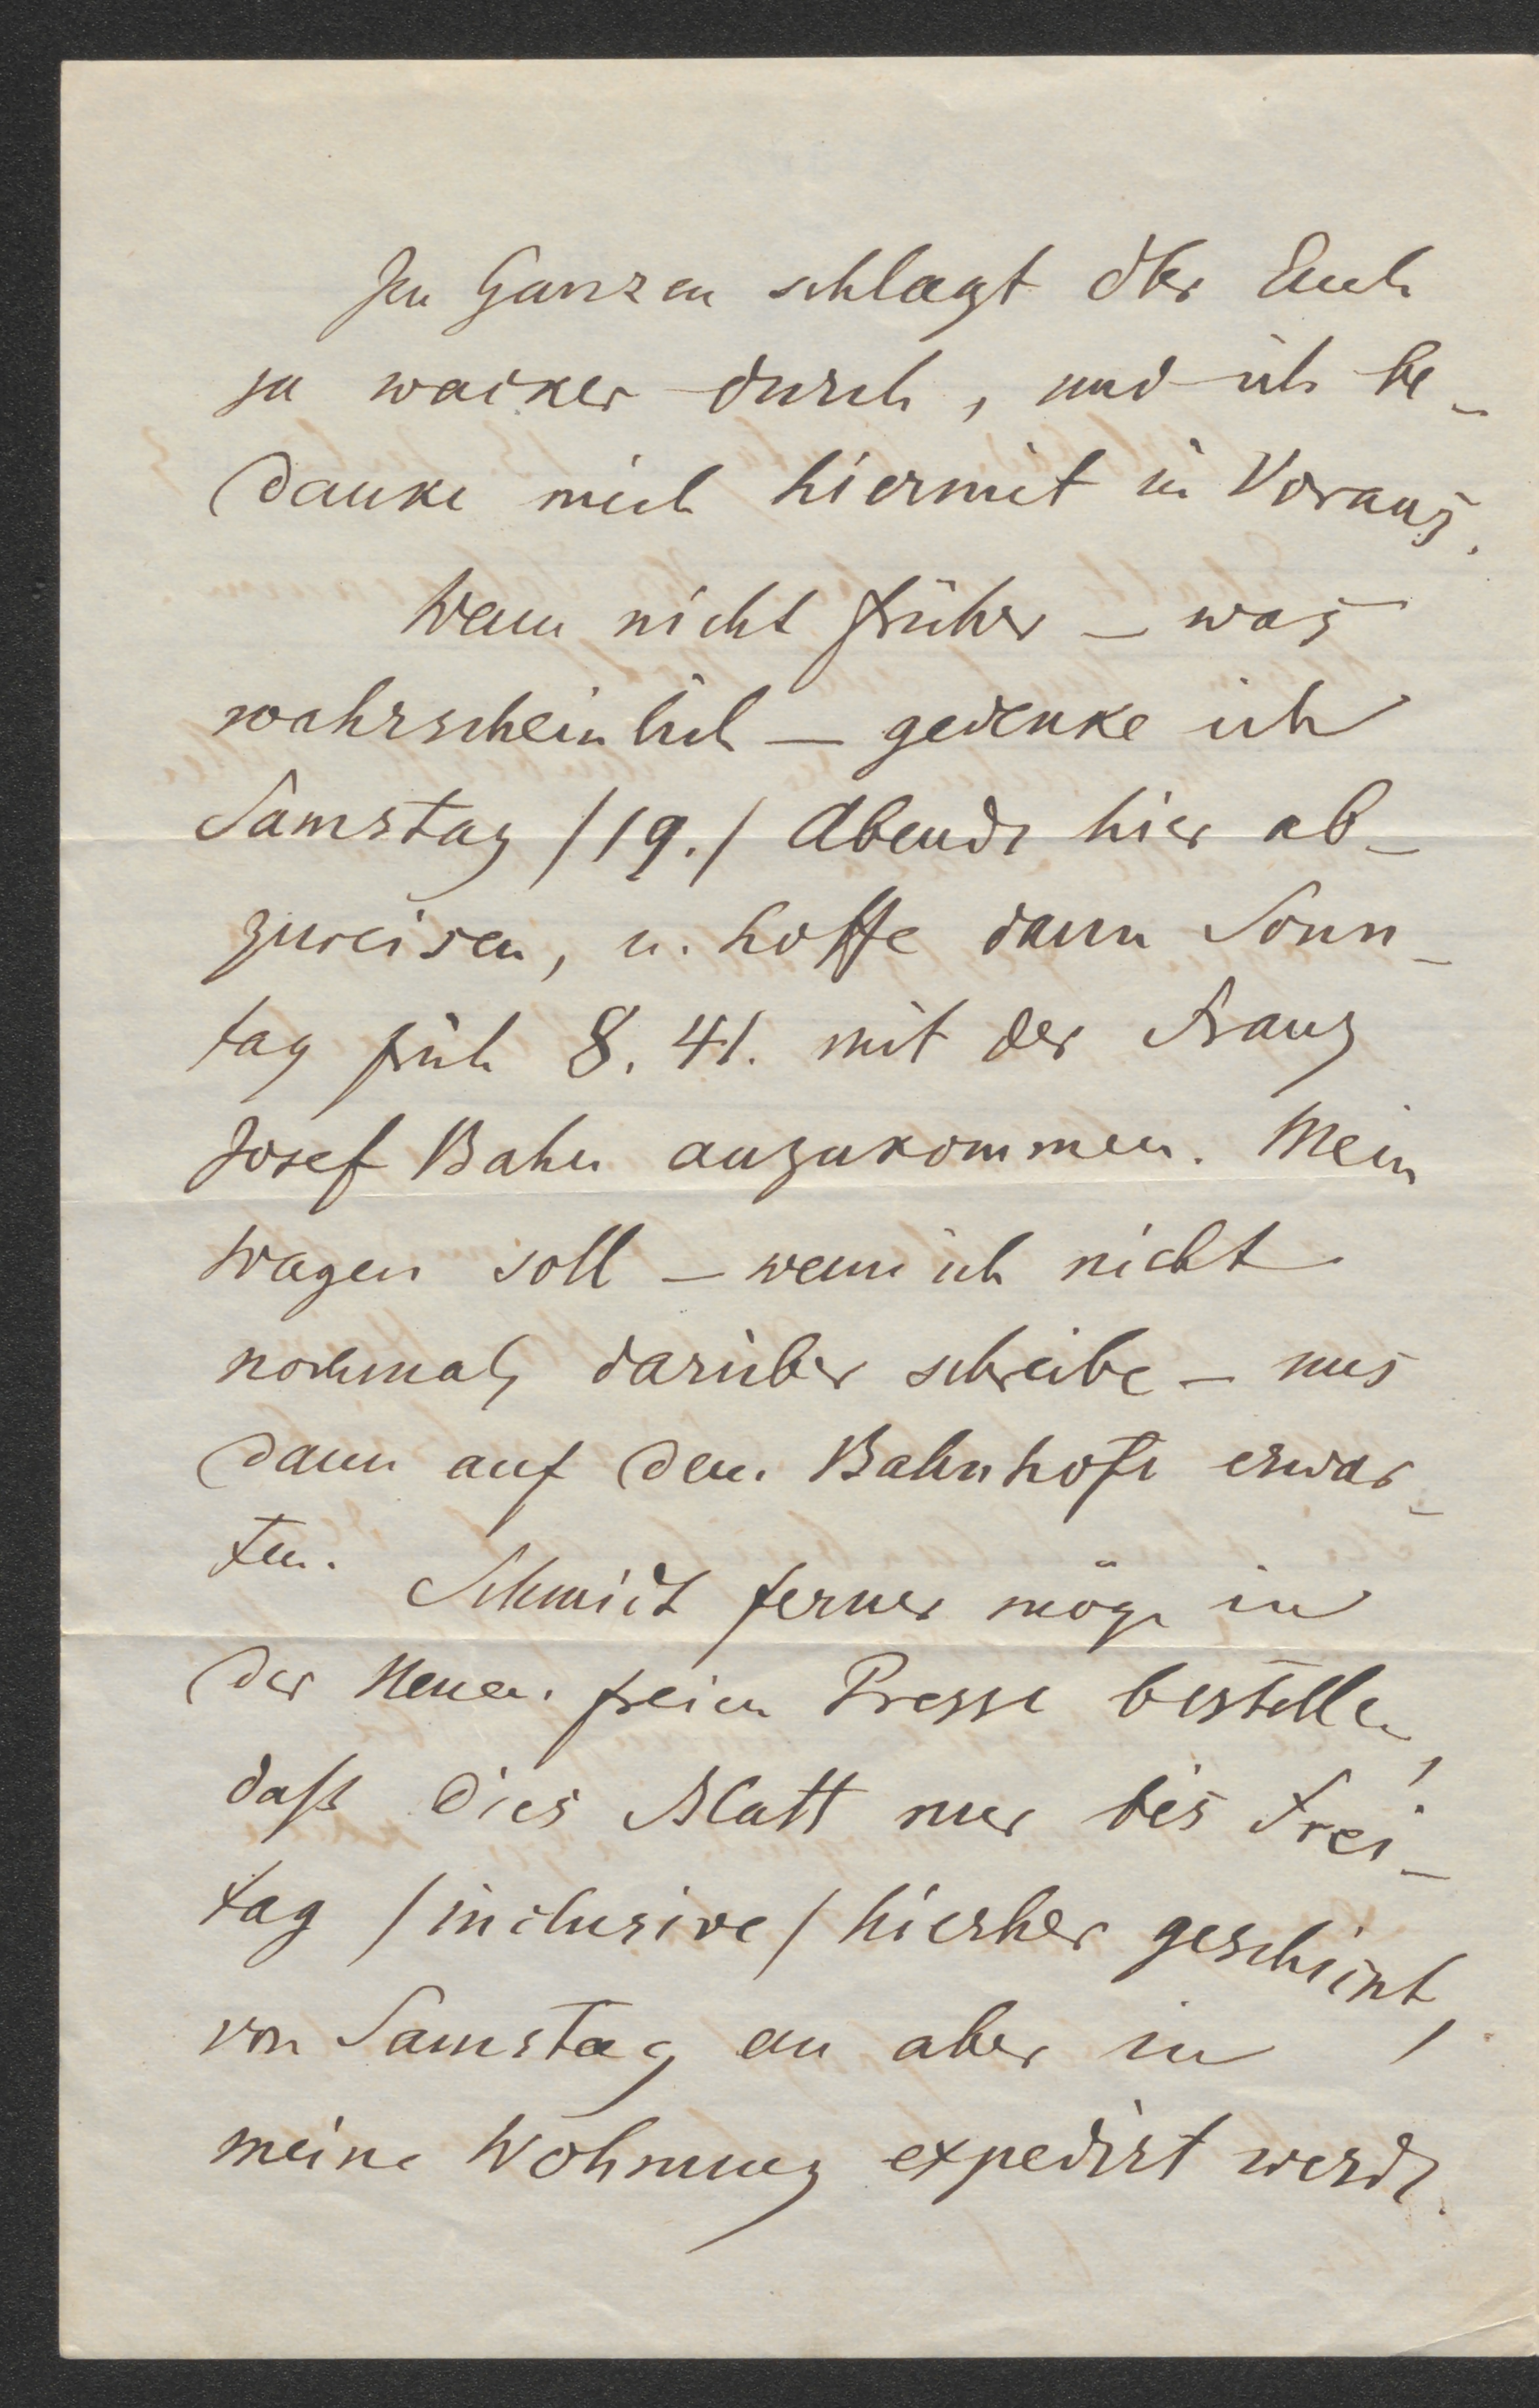 Im Ganzen schlagt Ihr Euch
ja wacker durch, und ich be-
danke mich hiermit in Voraus.
Wenn nicht früher – was
wahrscheinlich – gedenke ich
Samstag /19./ Abends hier ab-
zureisen, u. hoffe dann Sonn-
tag früh 8. 41. mit der Franz
Josef Bahn anzukommen. Mein
Wagen soll – wenn ich nicht
nochmals darüber schreibe – uns
dann auf dem Bahnhofe erwar-
ten. Schmidt ferner möge in
der Neuen freien Presse bestellen,
daß dies Blatt nur bis Frei-
tag /inclusive/ hierher geschickt,
von Samstag an aber in
meine Wohnung expedirt werde.